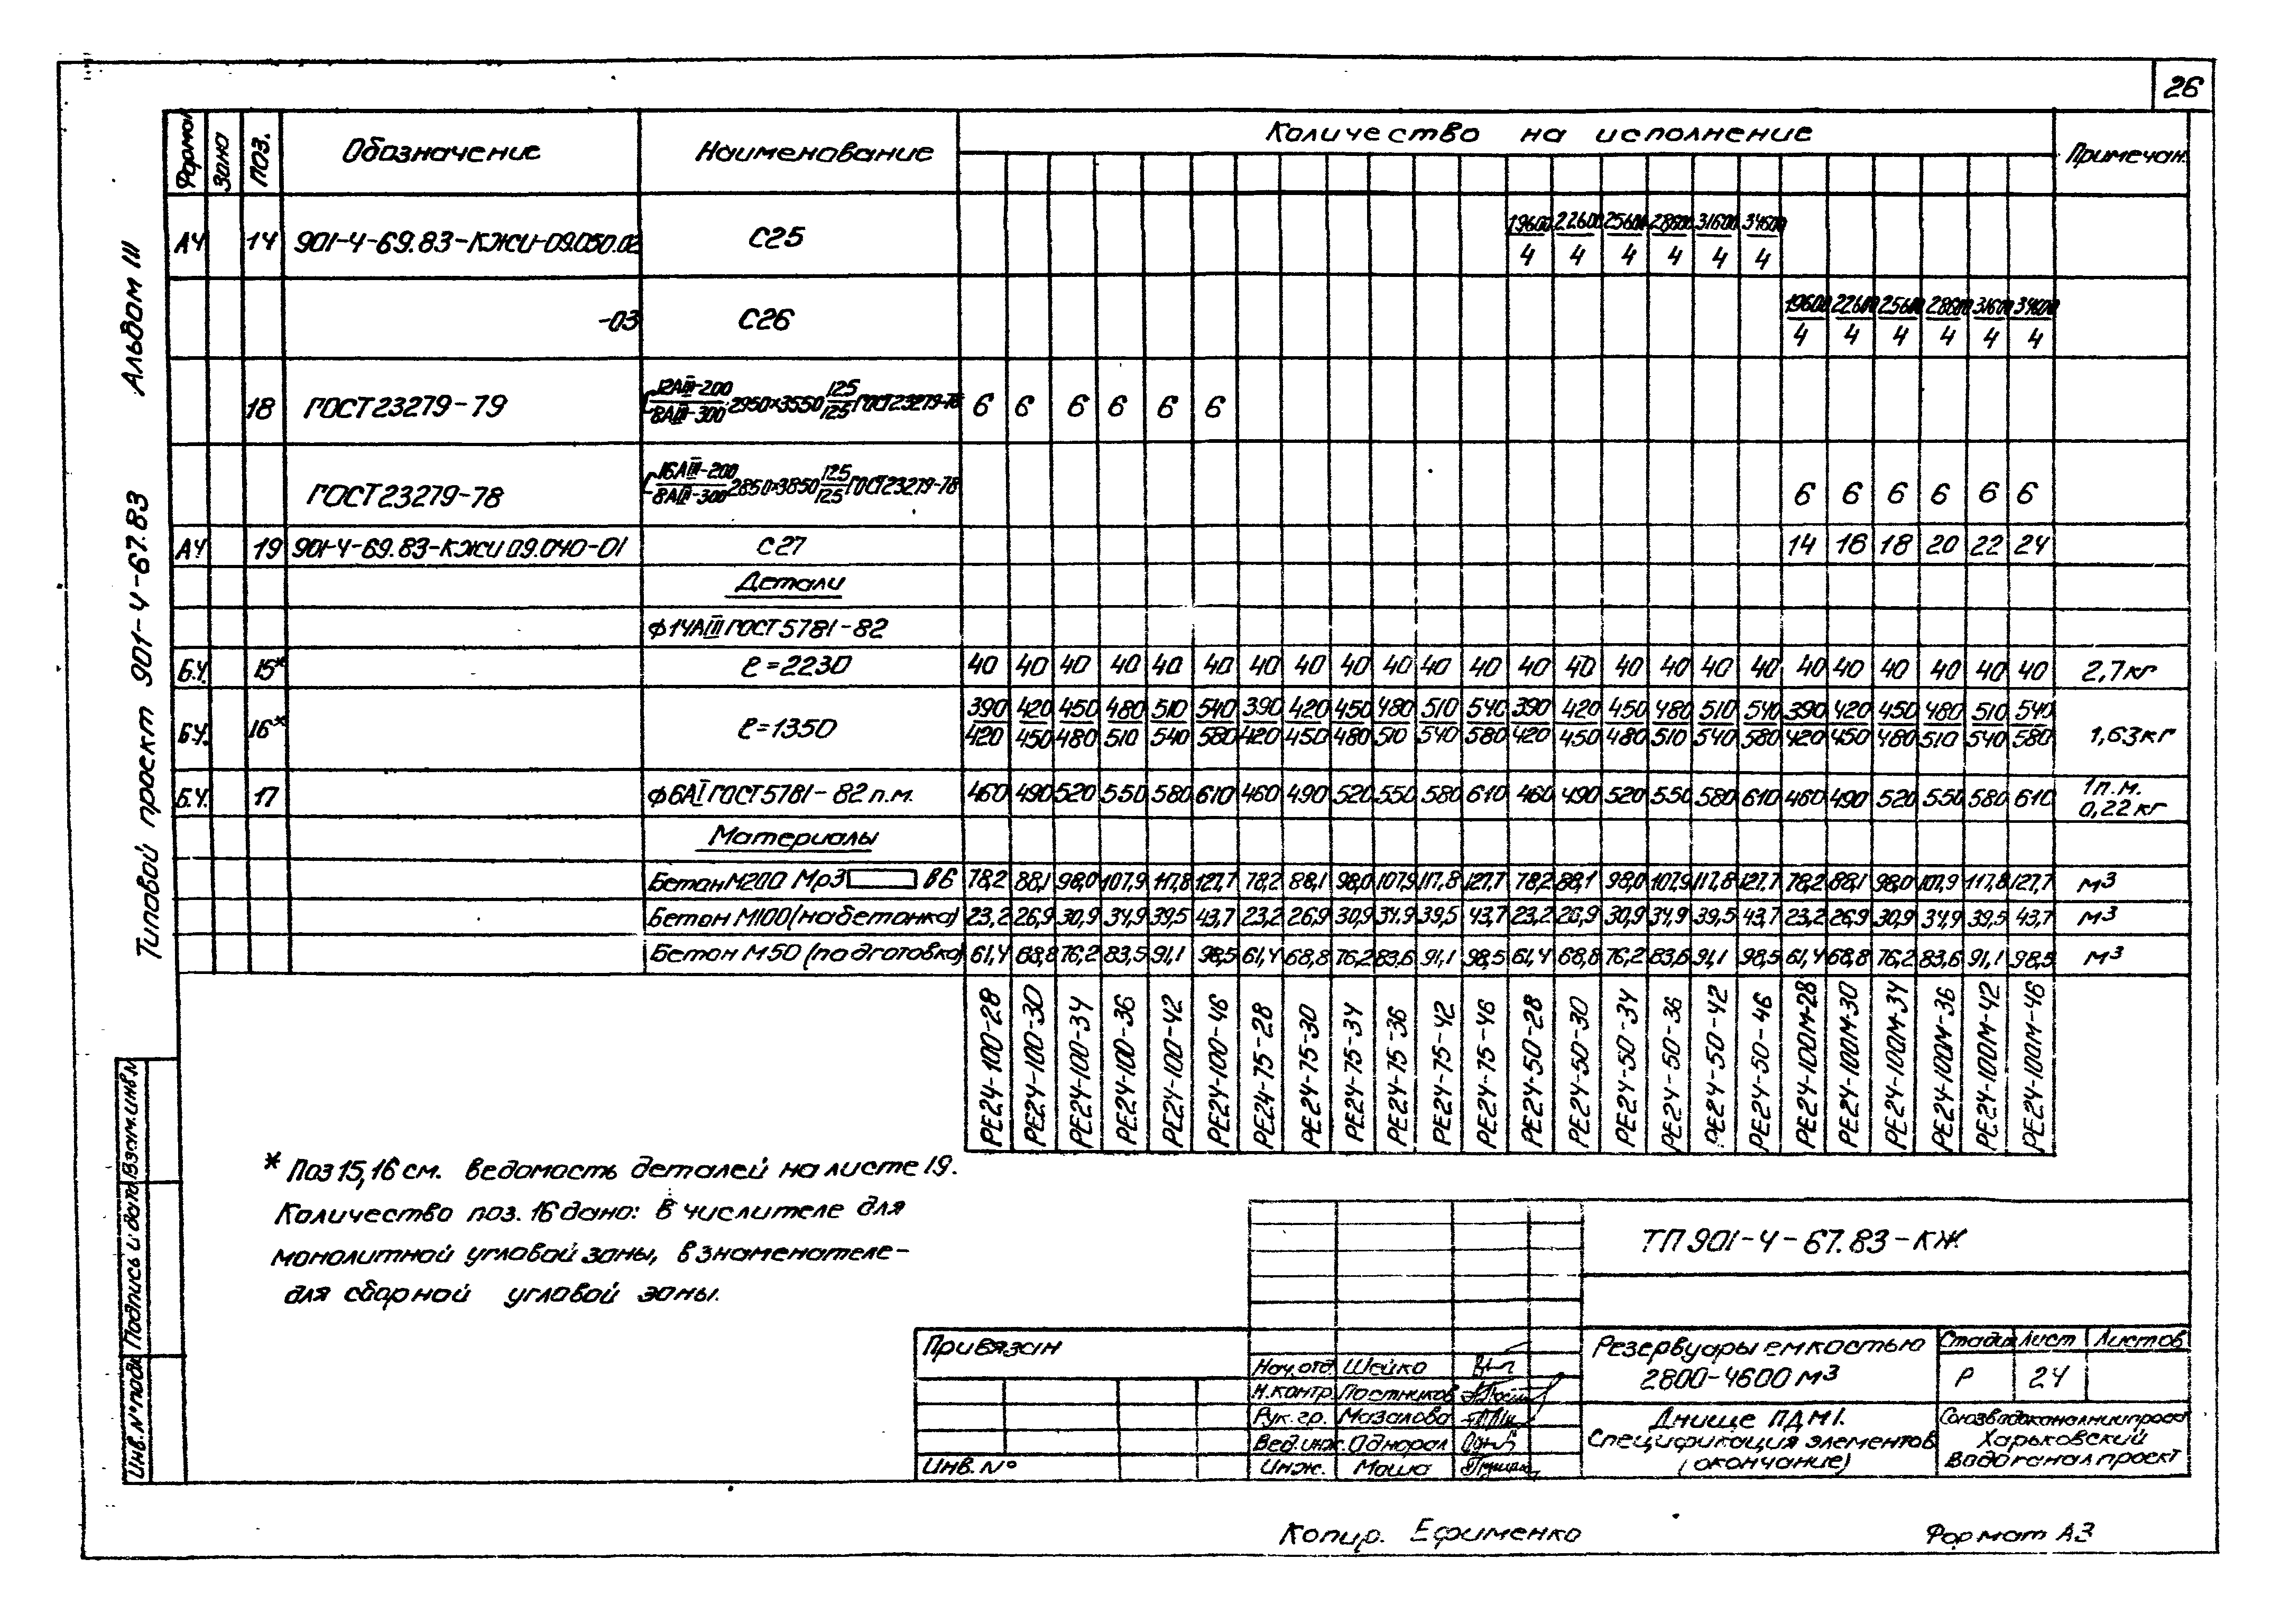 26
Альбом III
Типовой проект 901-4-67.83
Формат Зона Поз. Обозначение Наименование Количество на исполнение Примечан.
А4 14 901-4-69.83-КЖИ-09.050.02 С25 19600/4 22600/4 25600/4 28600/4 31600/4 34600/4
-03 С26 19600/4 22600/4 25600/4 28600/4 31600/4 34600/4
18 ГОСТ 23279-79 12АIII-200/8АIII-300 2950×3550 125/125 ГОСТ 23279-78 6 6 6 6 6 6
ГОСТ 23279-78 16АIII-200/8АIII-300 2850×3850 125/125 ГОСТ 23279-78 6 6 6 6 6 6
А4 19 901-4-69.83-КЖИ 09.040-01 С27 14 16 18 20 22 24
Детали
ф14АIII ГОСТ 5781-82
Б.Ч. 15* ℓ=2230 40 40 40 40 40 40 40 40 40 40 40 40 40 40 40 40 40 40 40 40 40 40 40 40 2,7кг
Б.Ч. 16* ℓ=1350 390/420 420/450 450/480 480/510 510/540 540/580 390/420 420/450 450/480 480/510 510/540 540/580 390/420 420/450 450/480 480/510 510/540 540/580 390/420 420/450 450/480 480/510 510/540 540/580 1,63кг
Б.Ч. 17 ф6АI ГОСТ 5781-82 п.м. 460 490 520 550 580 610 460 490 520 550 580 610 460 490 520 550 580 610 460 490 520 550 580 610 1п.м. 0,22кг
Материалы
Бетон М200 Мрз В6 78,2 88,1 98,0 107,9 117,8 127,7 78,2 88,1 98,0 107,9 117,8 127,7 78,2 88,1 98,0 107,9 117,8 127,7 78,2 88,1 98,0 107,9 117,8 127,7 м3
Бетон М100 (набетонка) 23,2 26,9 30,9 34,9 39,5 43,7 23,2 26,9 30,9 34,9 39,5 43,7 23,2 26,9 30,9 34,9 39,5 43,7 23,2 26,9 30,9 34,9 39,5 43,7 м3
Бетон М50 (подготовка) 61,4 68,8 76,2 83,5 91,1 98,5 61,4 68,8 76,2 83,6 91,1 98,5 61,4 68,8 76,2 83,6 91,1 98,5 61,4 68,8 76,2 83,6 91,1 98,5 м3
РЕ24-100-28 РЕ24-100-30 РЕ24-100-34 РЕ24-100-36 РЕ24-100-42 РЕ24-100-46 РЕ24-75-28 РЕ24-75-30 РЕ24-75-34 РЕ24-75-36 РЕ24-75-42 РЕ24-75-46 РЕ24-50-28 РЕ24-50-30 РЕ24-50-34 РЕ24-50-36 РЕ24-50-42 РЕ24-50-46 РЕ24-100М-28 РЕ24-100М-30 РЕ24-100М-34 РЕ24-100М-36 РЕ24-100М-42 РЕ24-100М-46
* Поз 15,16 см. ведомость деталей на листе 19.
Количество поз. 16 дано: в числителе для
монолитной угловой зоны, в знаменателе-
для сборной угловой зоны.
Инв.№подл Подпись и дата Взам.инв.№
ТП 901-4-67.83-КЖ
Привязан
Инв.№
Нач.отд. Шейко
Н.контр. Постников
Рук.гр. Мазалова
Вед.инж. Однорал
Инж. Маша
Резервуары емкостью
2800-4600 м3
Стадия Лист Листов
Р 24
Днище ПДМ1.
Спецификация элементов
(окончание)
Союзводоканалниипроект
Харьковский
Водоканалпроект
Копир. Ефименко
Формат А3